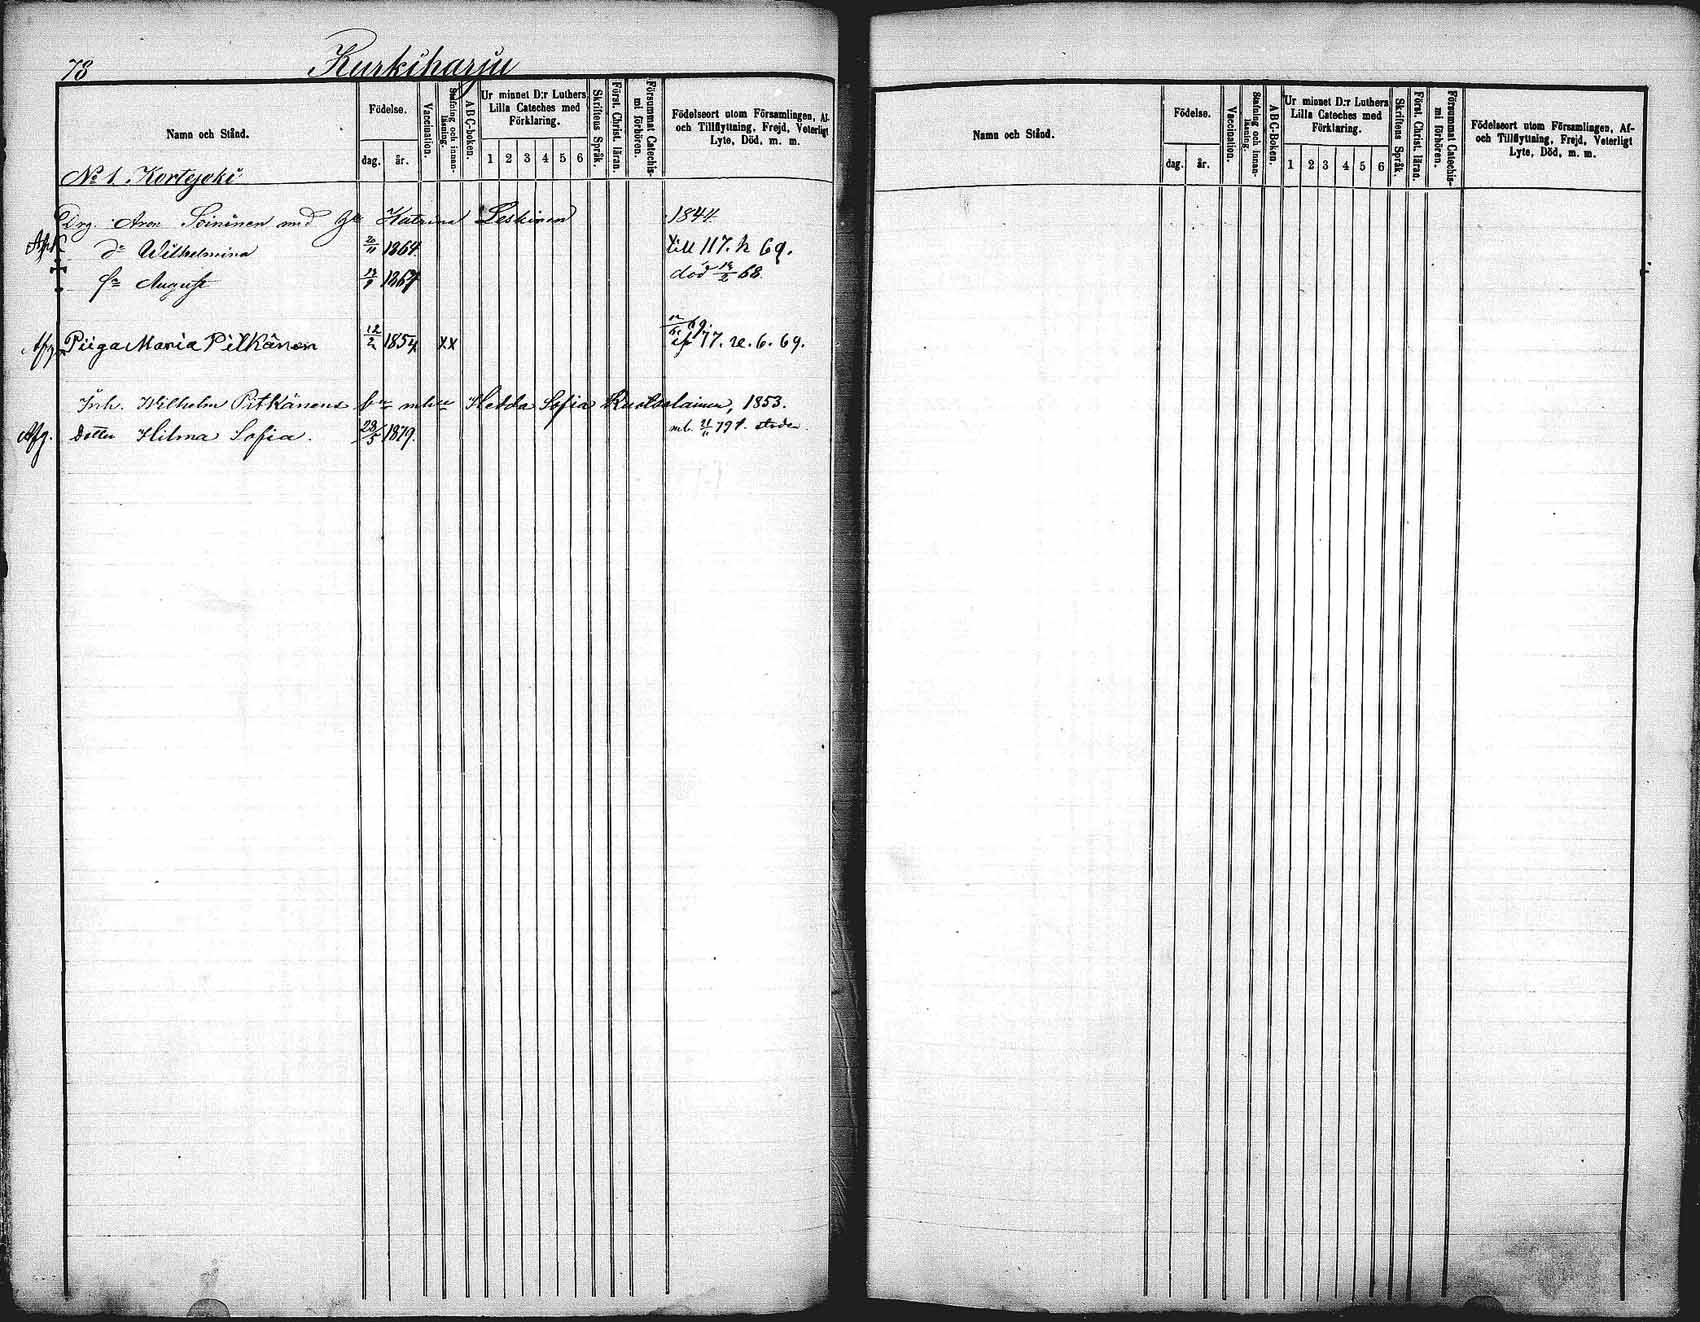 78
Kurkiharju
Namn och Stånd.
Födelse.
dag.
år.
Vaccination.
Stafning och innanläsning.
ABC-boken.
Ur minnet D:r Luthers
Lilla Cateches med
Förklaring.
1 2 3 4 5 6
Skriftens Språk.
Först. Christ. läran.
Försummat Catechismi förhören.
Födelseort utom Församlingen, Af-
och Tillflyttning, Frejd, Veterligt
Lyte, Död, m. m.
No 1. Kortejoki
Drg. Aron Soininen med Katrina Leskinen 1844
Afg. dr Wilhelmina 20/11 1864 till 117. h 69.
† sn August 1867 död 68
Afg. Piiga Maria Pitkänen 12/2 1854 xx 17. 6. 69.
Inh. Wilhelm Pitkänens Hedda Sofia 1853.
Afg. Dotter Hilma Sofia. 28/5 1879. 79 t. staden
Namn och Stånd.
Födelse.
dag.
år.
Vaccination.
Stafning och innanläsning.
ABC-Boken.
Ur minnet D:r Luthers
Lilla Cateches med
Förklaring.
1 2 3 4 5 6
Skriftens Språk.
Först. Christ. läran.
Försummat Catechismi förhören.
Födelseort utom Församlingen, Af-
och Tillflyttning, Frejd, Veterligt
Lyte, Död, m. m.